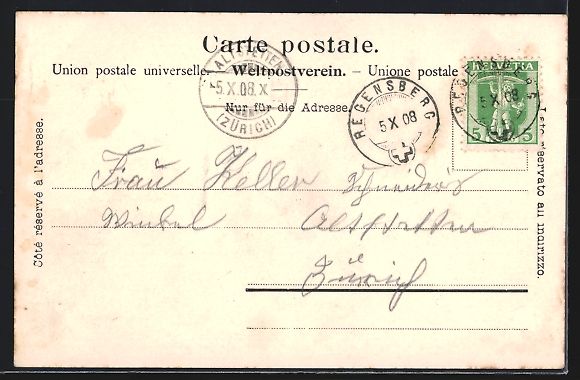 Carte postale.
Union postale universelle. — Weltpostverein. — Unione postale
Nur für die Adresse.
ALTSTETTEN
5.X.08.X
(ZÜRICH)
REGENSBERG
5 X 08
REGENSBERG
5 X 08
HELVETIA
5 5
Côté réservé à l'adresse.
Lato riservato all'indirizzo.
Frau Keller Schneider's
Winkel Altstetten
Zürich